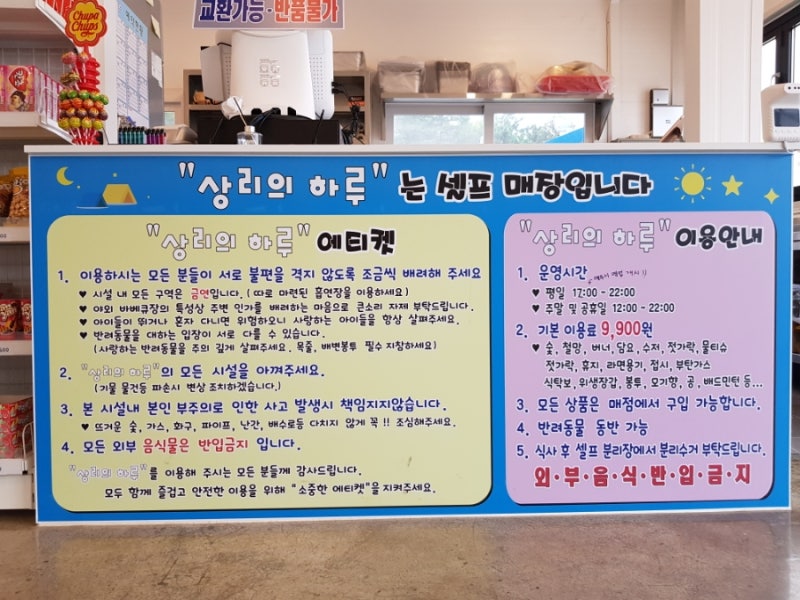 Chupa Chups
교환가능·반품불가
"상리의 하루" 는 셀프 매장입니다
"상리의 하루" 에티켓
1. 이용하시는 모든 분들이 서로 불편을 격지 않도록 조금씩 배려해 주세요
♥ 시설 내 모든 구역은 금연입니다. (따로 마련된 흡연장을 이용하세요)
♥ 야외 바베큐장의 특성상 주변 인가를 배려하는 마음으로 큰소리 자제 부탁드립니다.
♥ 아이들이 뛰거나 혼자 다니면 위험하오니 사랑하는 아이들을 항상 살펴주세요.
♥ 반려동물을 대하는 입장이 서로 다를 수 있습니다.
(사랑하는 반려동물을 주의 깊게 살펴주세요. 목줄, 배변봉투 필수 지참하세요)
2. "상리의 하루"의 모든 시설을 아껴주세요.
(기물 물건등 파손시 변상 조치하겠습니다.)
3. 본 시설내 본인 부주의로 인한 사고 발생시 책임지지않습니다.
♥ 뜨거운 숯, 가스, 화구, 파이프, 난간, 배수로등 다치지 않게 꼭 !! 조심해주세요.
4. 모든 외부 음식물은 반입금지 입니다.
"상리의 하루"를 이용해 주시는 모든 분들께 감사드립니다.
모두 함께 즐겁고 안전한 이용을 위해 "소중한 에티켓"을 지켜주세요.
"상리의 하루" 이용안내
1. 운영시간
♥ 평일 17:00 - 22:00
♥ 주말 및 공휴일 12:00 - 22:00
2. 기본 이용료 9,900원
♥ 숯, 철망, 버너, 담요, 수저, 젓가락, 물티슈
젓가락, 휴지, 라면용기, 접시, 부탄가스
식탁보, 위생장갑, 봉투, 모기향, 공, 배드민턴 등...
3. 모든 상품은 매점에서 구입 가능합니다.
4. 반려동물 동반 가능
5. 식사 후 셀프 분리장에서 분리수거 부탁드립니다.
외·부·음·식·반·입·금·지